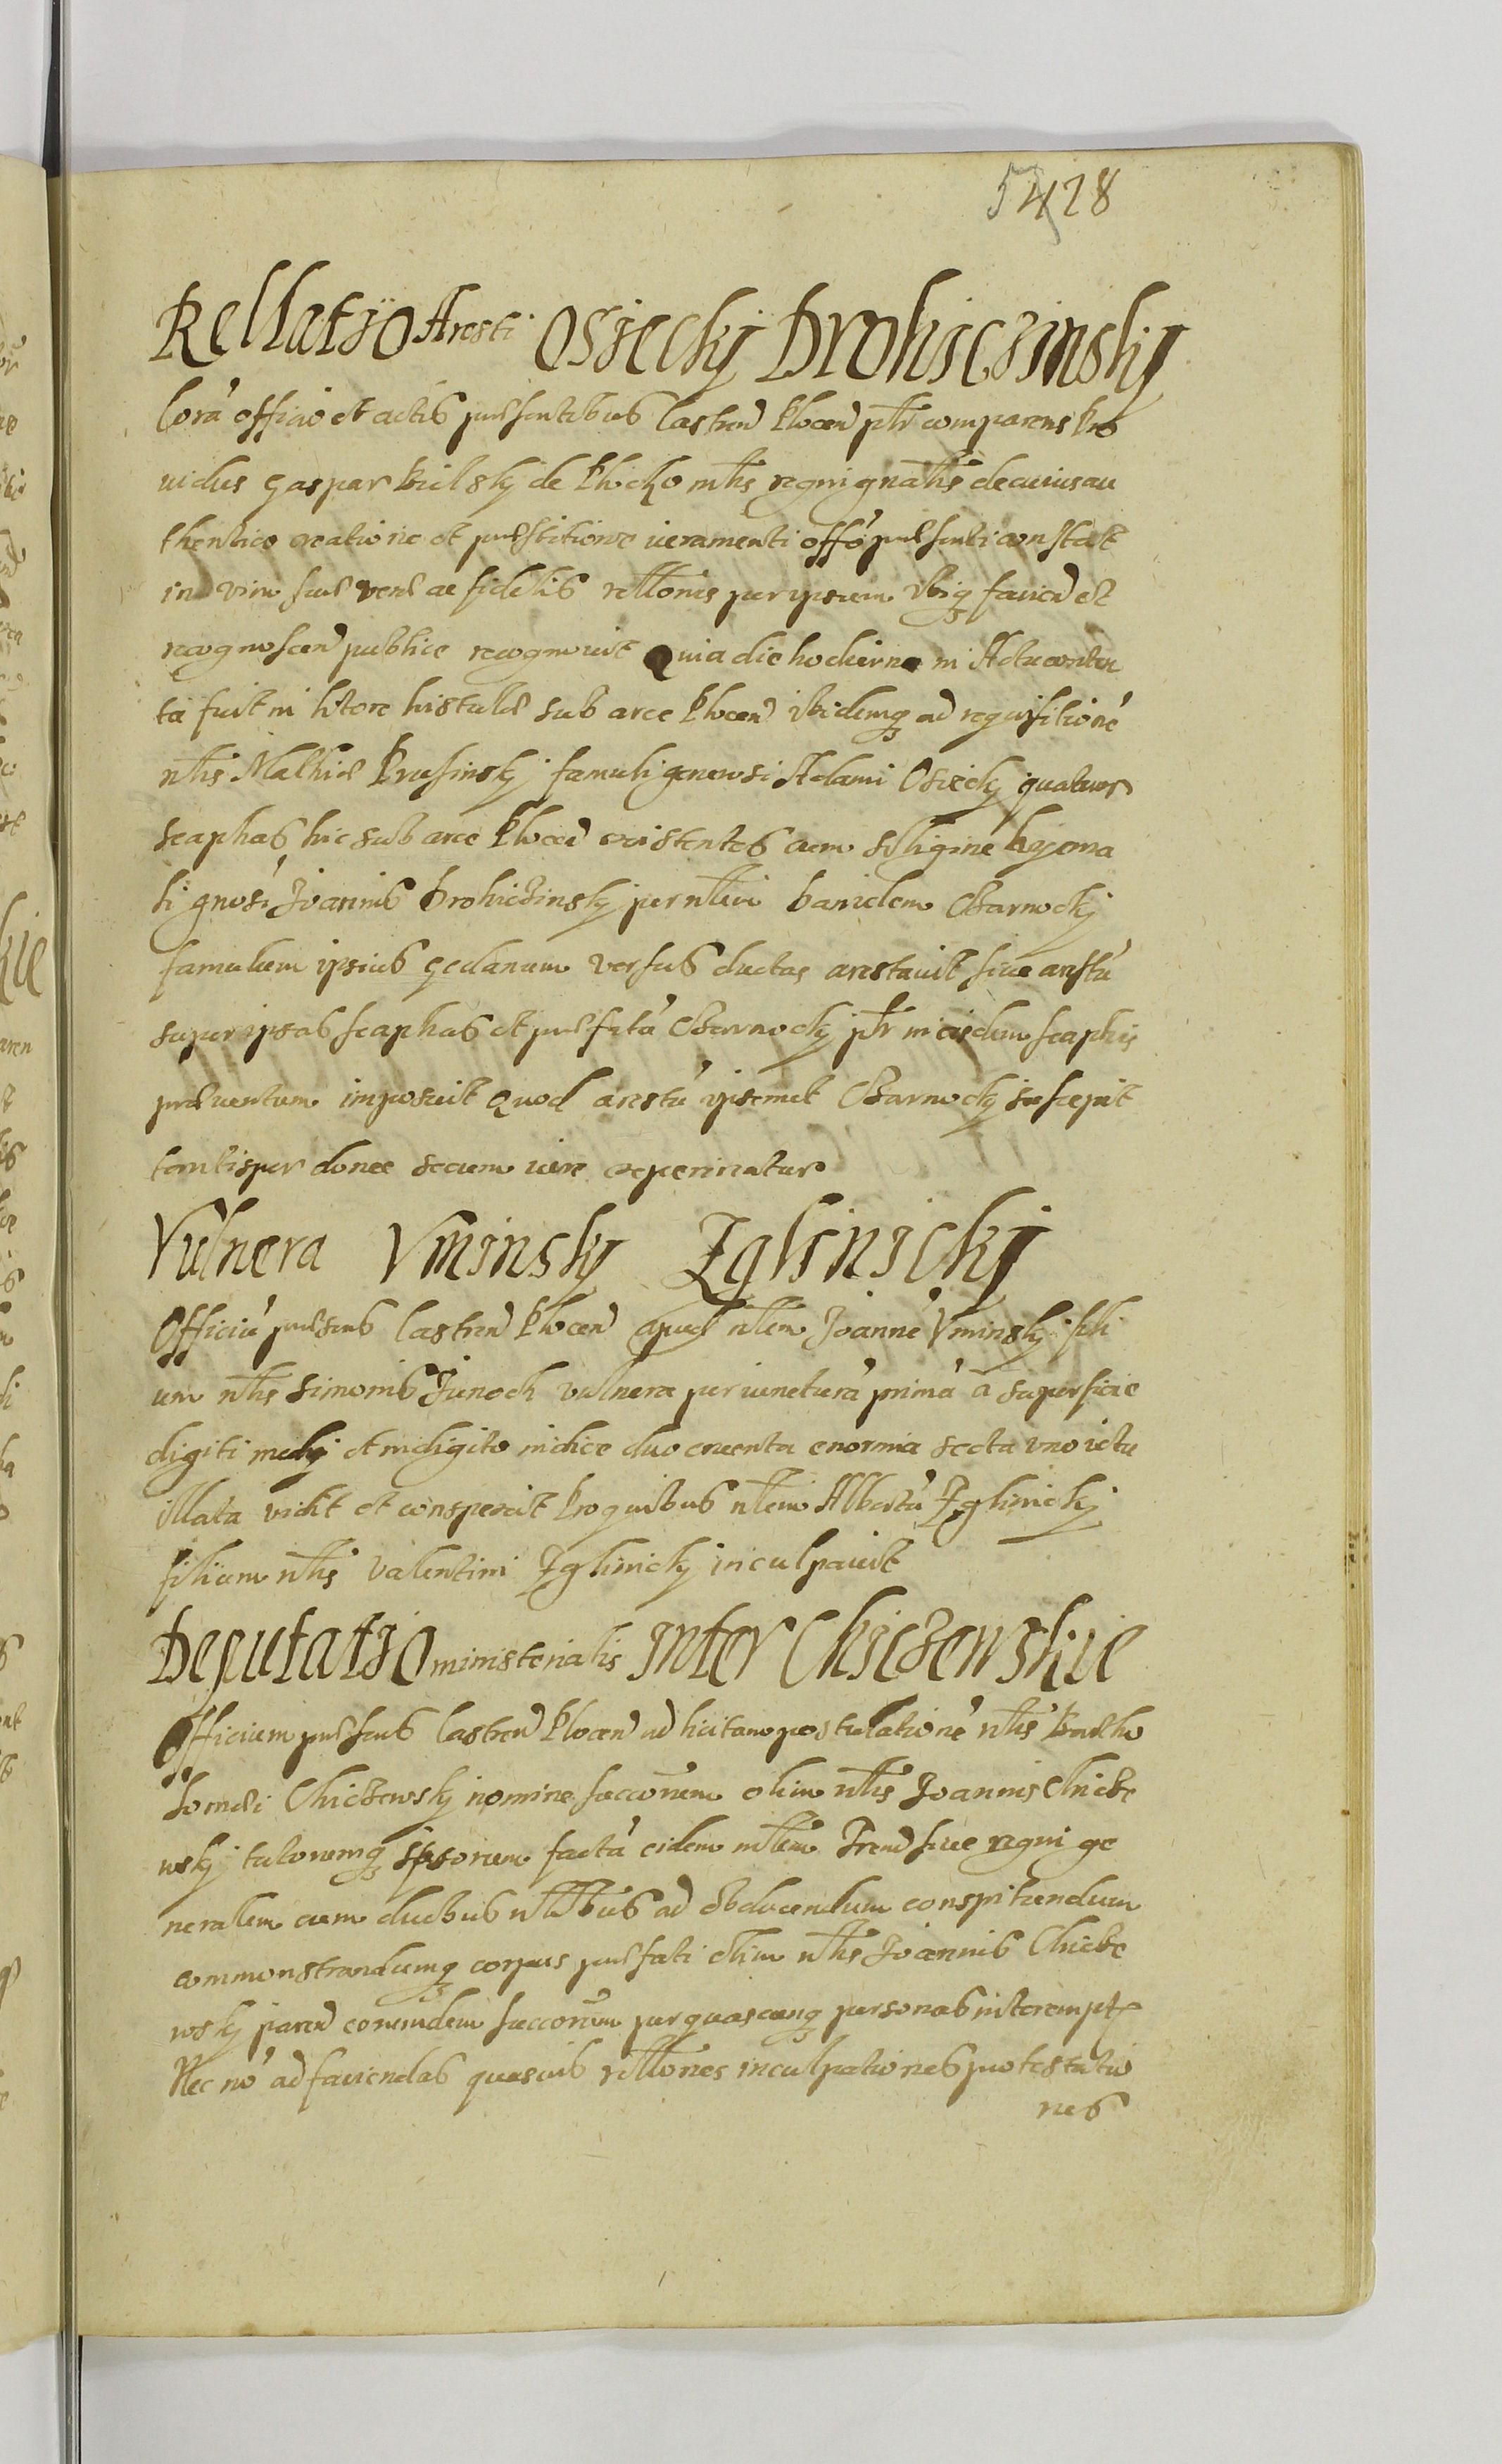 5428
Rellatio Aresti Osiecky Drohiczinsky
Corā officio et actis pnsentibus Castren Plocen pntr comparens Pro
uidus Gaspar Bielsky de Plocko mtis regni gnalis de cuius au
thentica creatione et pnstitione iuramenti offo pnsenti constat
in vim suae verae ac fidelis rellonis per ipsum vbiq faciend et
recognoscend publice recognouit Quia die hodierna in Actu conten
ta fuit in litore Vistulae sub arce Plocen ibidemq ad requisitionē
nlis Mathiae Prusinsky famuli generosi Adami Osiecky quatuor
scaphas hic sub arce Plocen existentes cum siligine hyema
li gnosi Joannis Drohiczinsky per nlem Danielem Czarnocky
famulum ipsius Gedanum versus ductas arestauit siue arestū
super ipsas scaphas et pnfatū Czarnocky pntr in eisdem scaphis
praeuentum imposuit Quod arestū ipsemet Czarnocky suscepit
tantisper donec secum iure experiratur
Vulnera Vminsky Zglinicky
Officiū pnsens Castren Plocen apud nlem Joannē Vminsky fili
um nlis Simonis Junock vulnera per iuncturā primā a superficie
digiti medij et in digito indice duo cruenta enormia secta vno ictu
illata vidit et conspexit Pro quibus nlem Albertū Zglinicky
filium nlis Valentini Zglinicky inculpauit
Deputatio ministerialis inter Chiczewskie
Officium pnsens Castren Plocen ad licitam postulationē nlis Bartho
lomaei Chiczewsky nomine succorum olim nlis Joannis Chicze
wsky tutorumq ipsorum factā eidem mlem Tren siue regni ge
neralem cum duobus nlibus ad obducendum conspitiendum
commonstrandumq corpus pnfati olim nlis Joannis Chicze
wsky paren eorundem succorum per quascunq personas interempti
Nec nō ad faciendas quasuis rellones inculpationes protestatio
nes